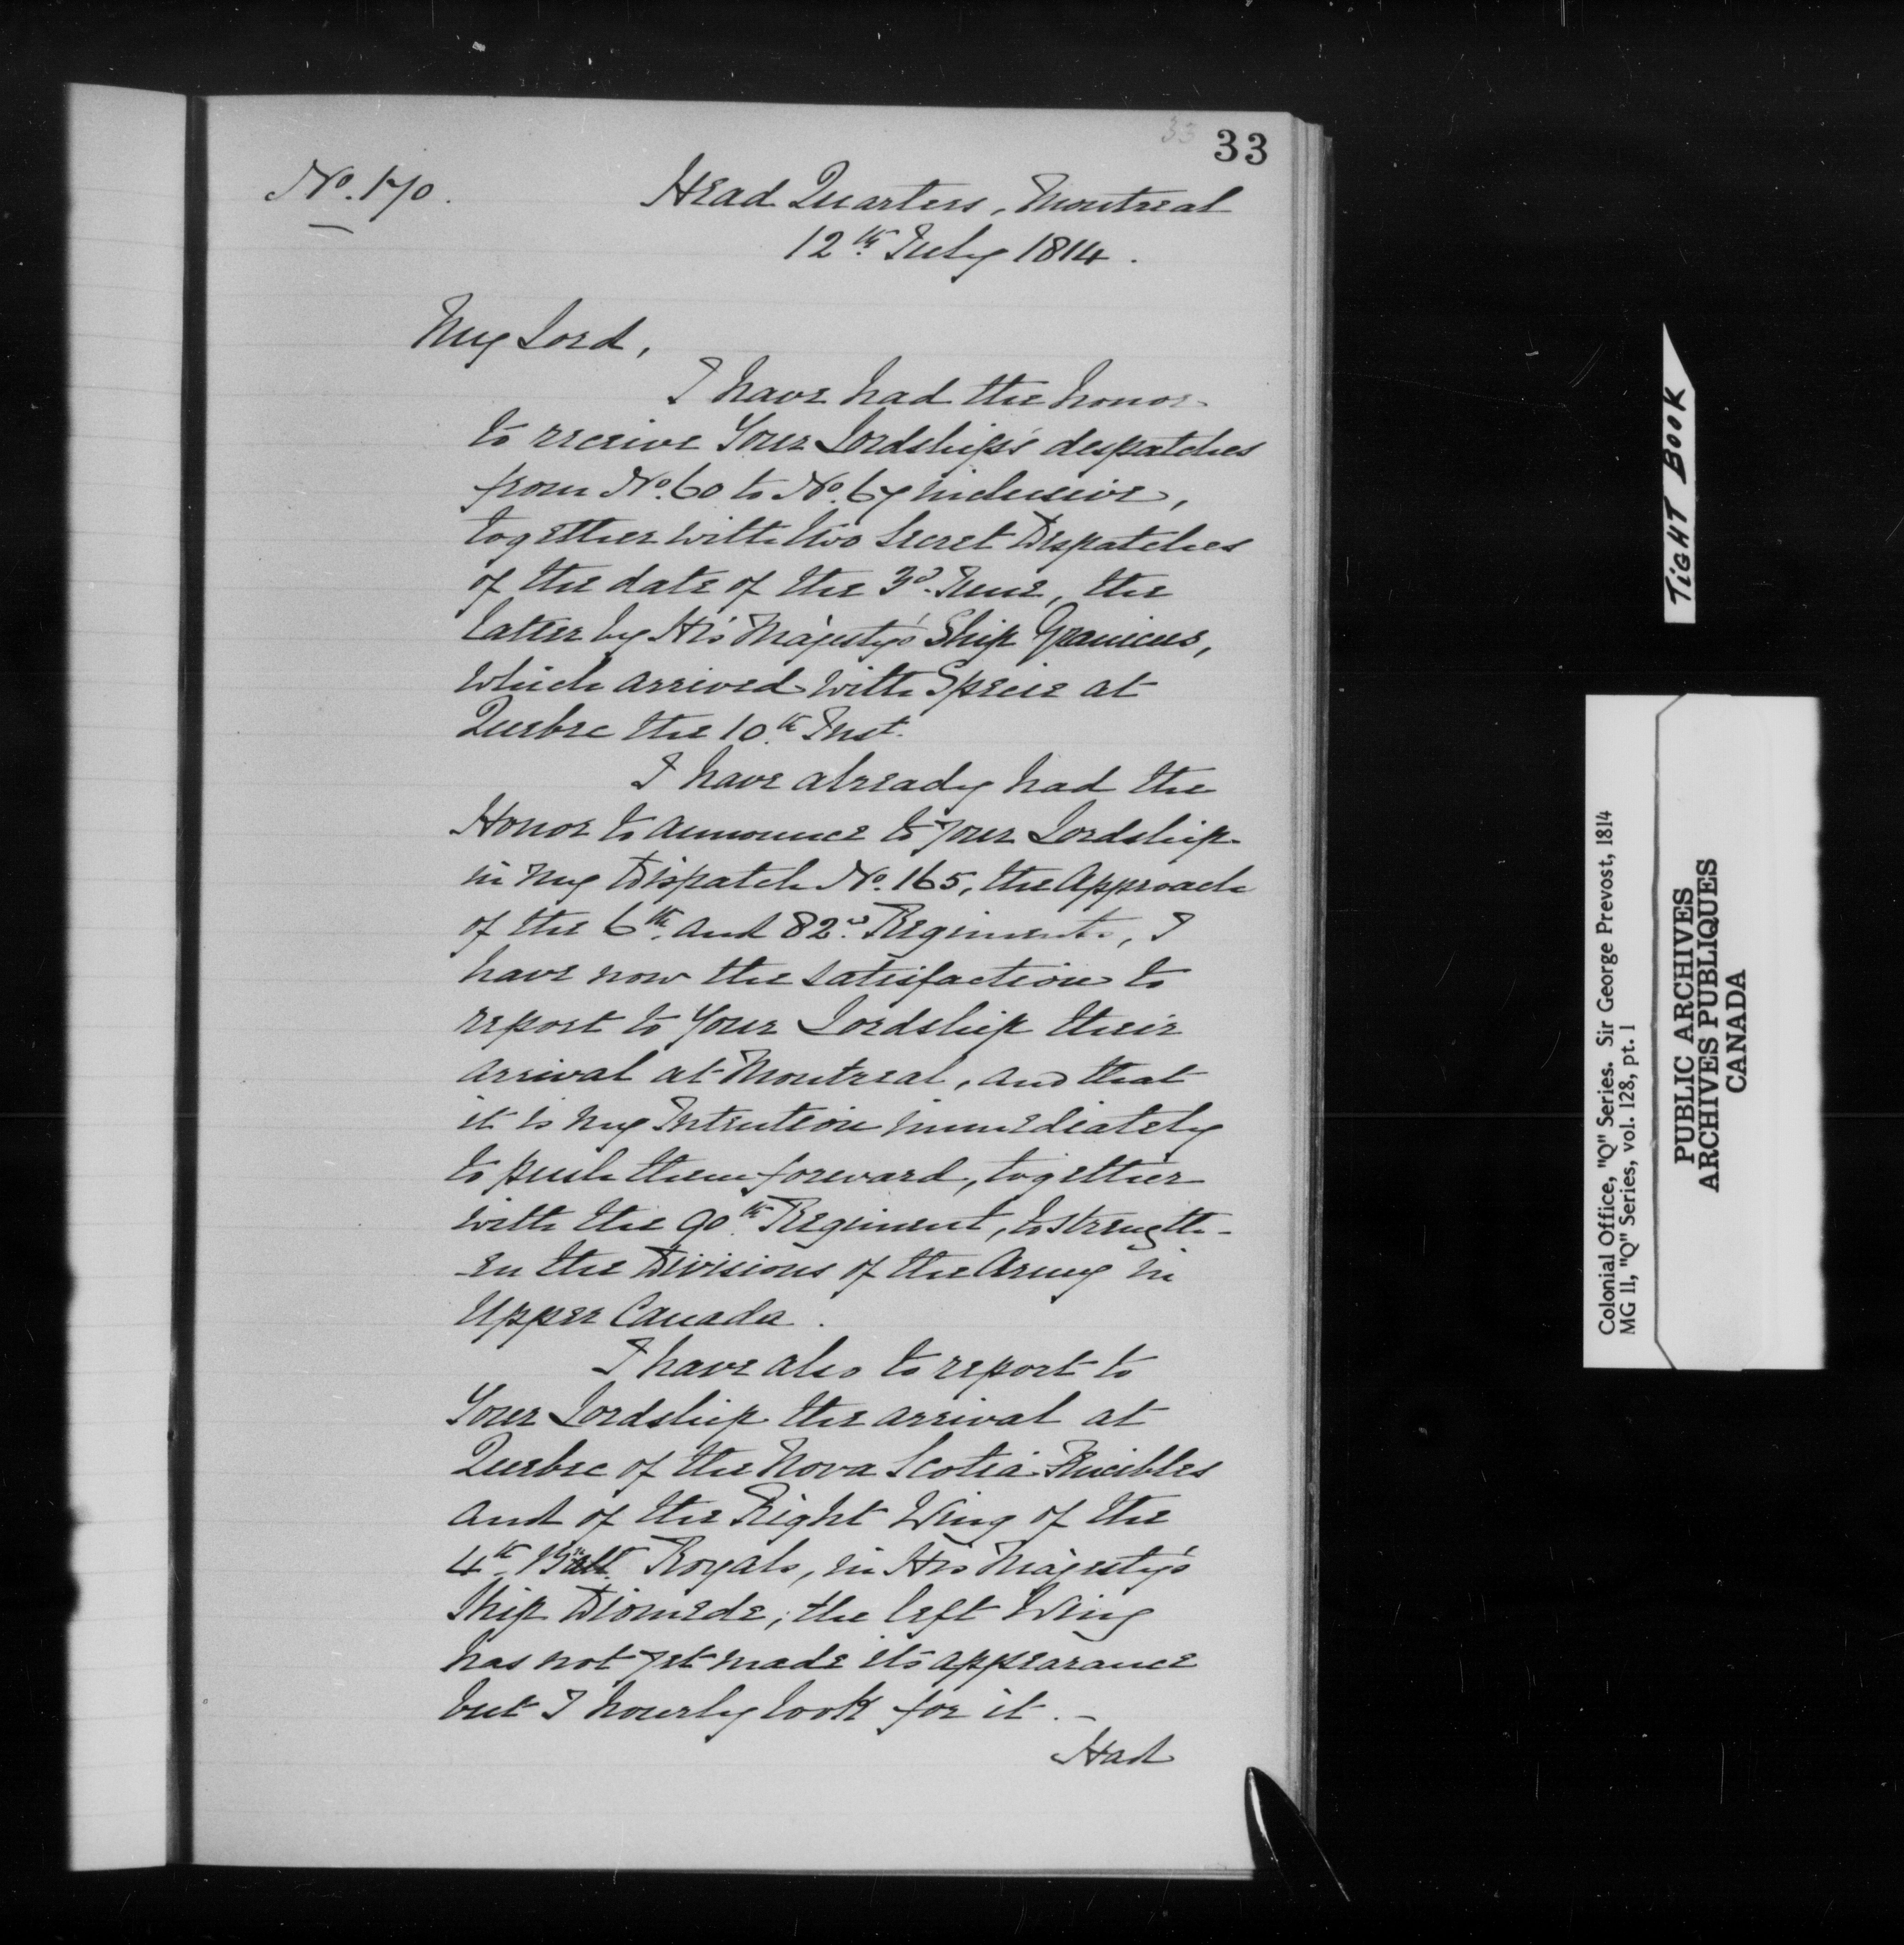 33 33
No. 170.
Head Quarters, Montreal
12th July 1814.
My Lord,
I have had the honor
to receive Your Lordship's despatches
from No. 60 to No. 67 inclusive,
together with two Secret Despatches
of the date of the 3d. June, the
latter by His Majesty's Ship Granicus,
which arrived with Specie at
Quebec the 10th Inst.
I have already had the
Honor to announce to your Lordship
in my Dispatch No. 165, the Approach
of the 6th and 82d. Regiments, I
have now the satisfaction to
report to Your Lordship their
arrival at Montreal, and that
it is my Intention immediately
to push them forward, together
with the 90th Regiment, to strength-
-en the Divisions of the Army in
Upper Canada.
I have also to report to
Your Lordship the arrival at
Quebec of the Nova Scotia Fencibles
and of the Right Wing of the
4th Batt. Royals, in His Majesty's
Ship Diomede; the left Wing
has not yet made its appearance
but I hourly look for it.-
Had
TIGHT BOOK
Colonial Office, "Q" Series. Sir George Prevost, 1814
MG 11, "Q" Series, vol. 128, pt. 1
PUBLIC ARCHIVES
ARCHIVES PUBLIQUES
CANADA